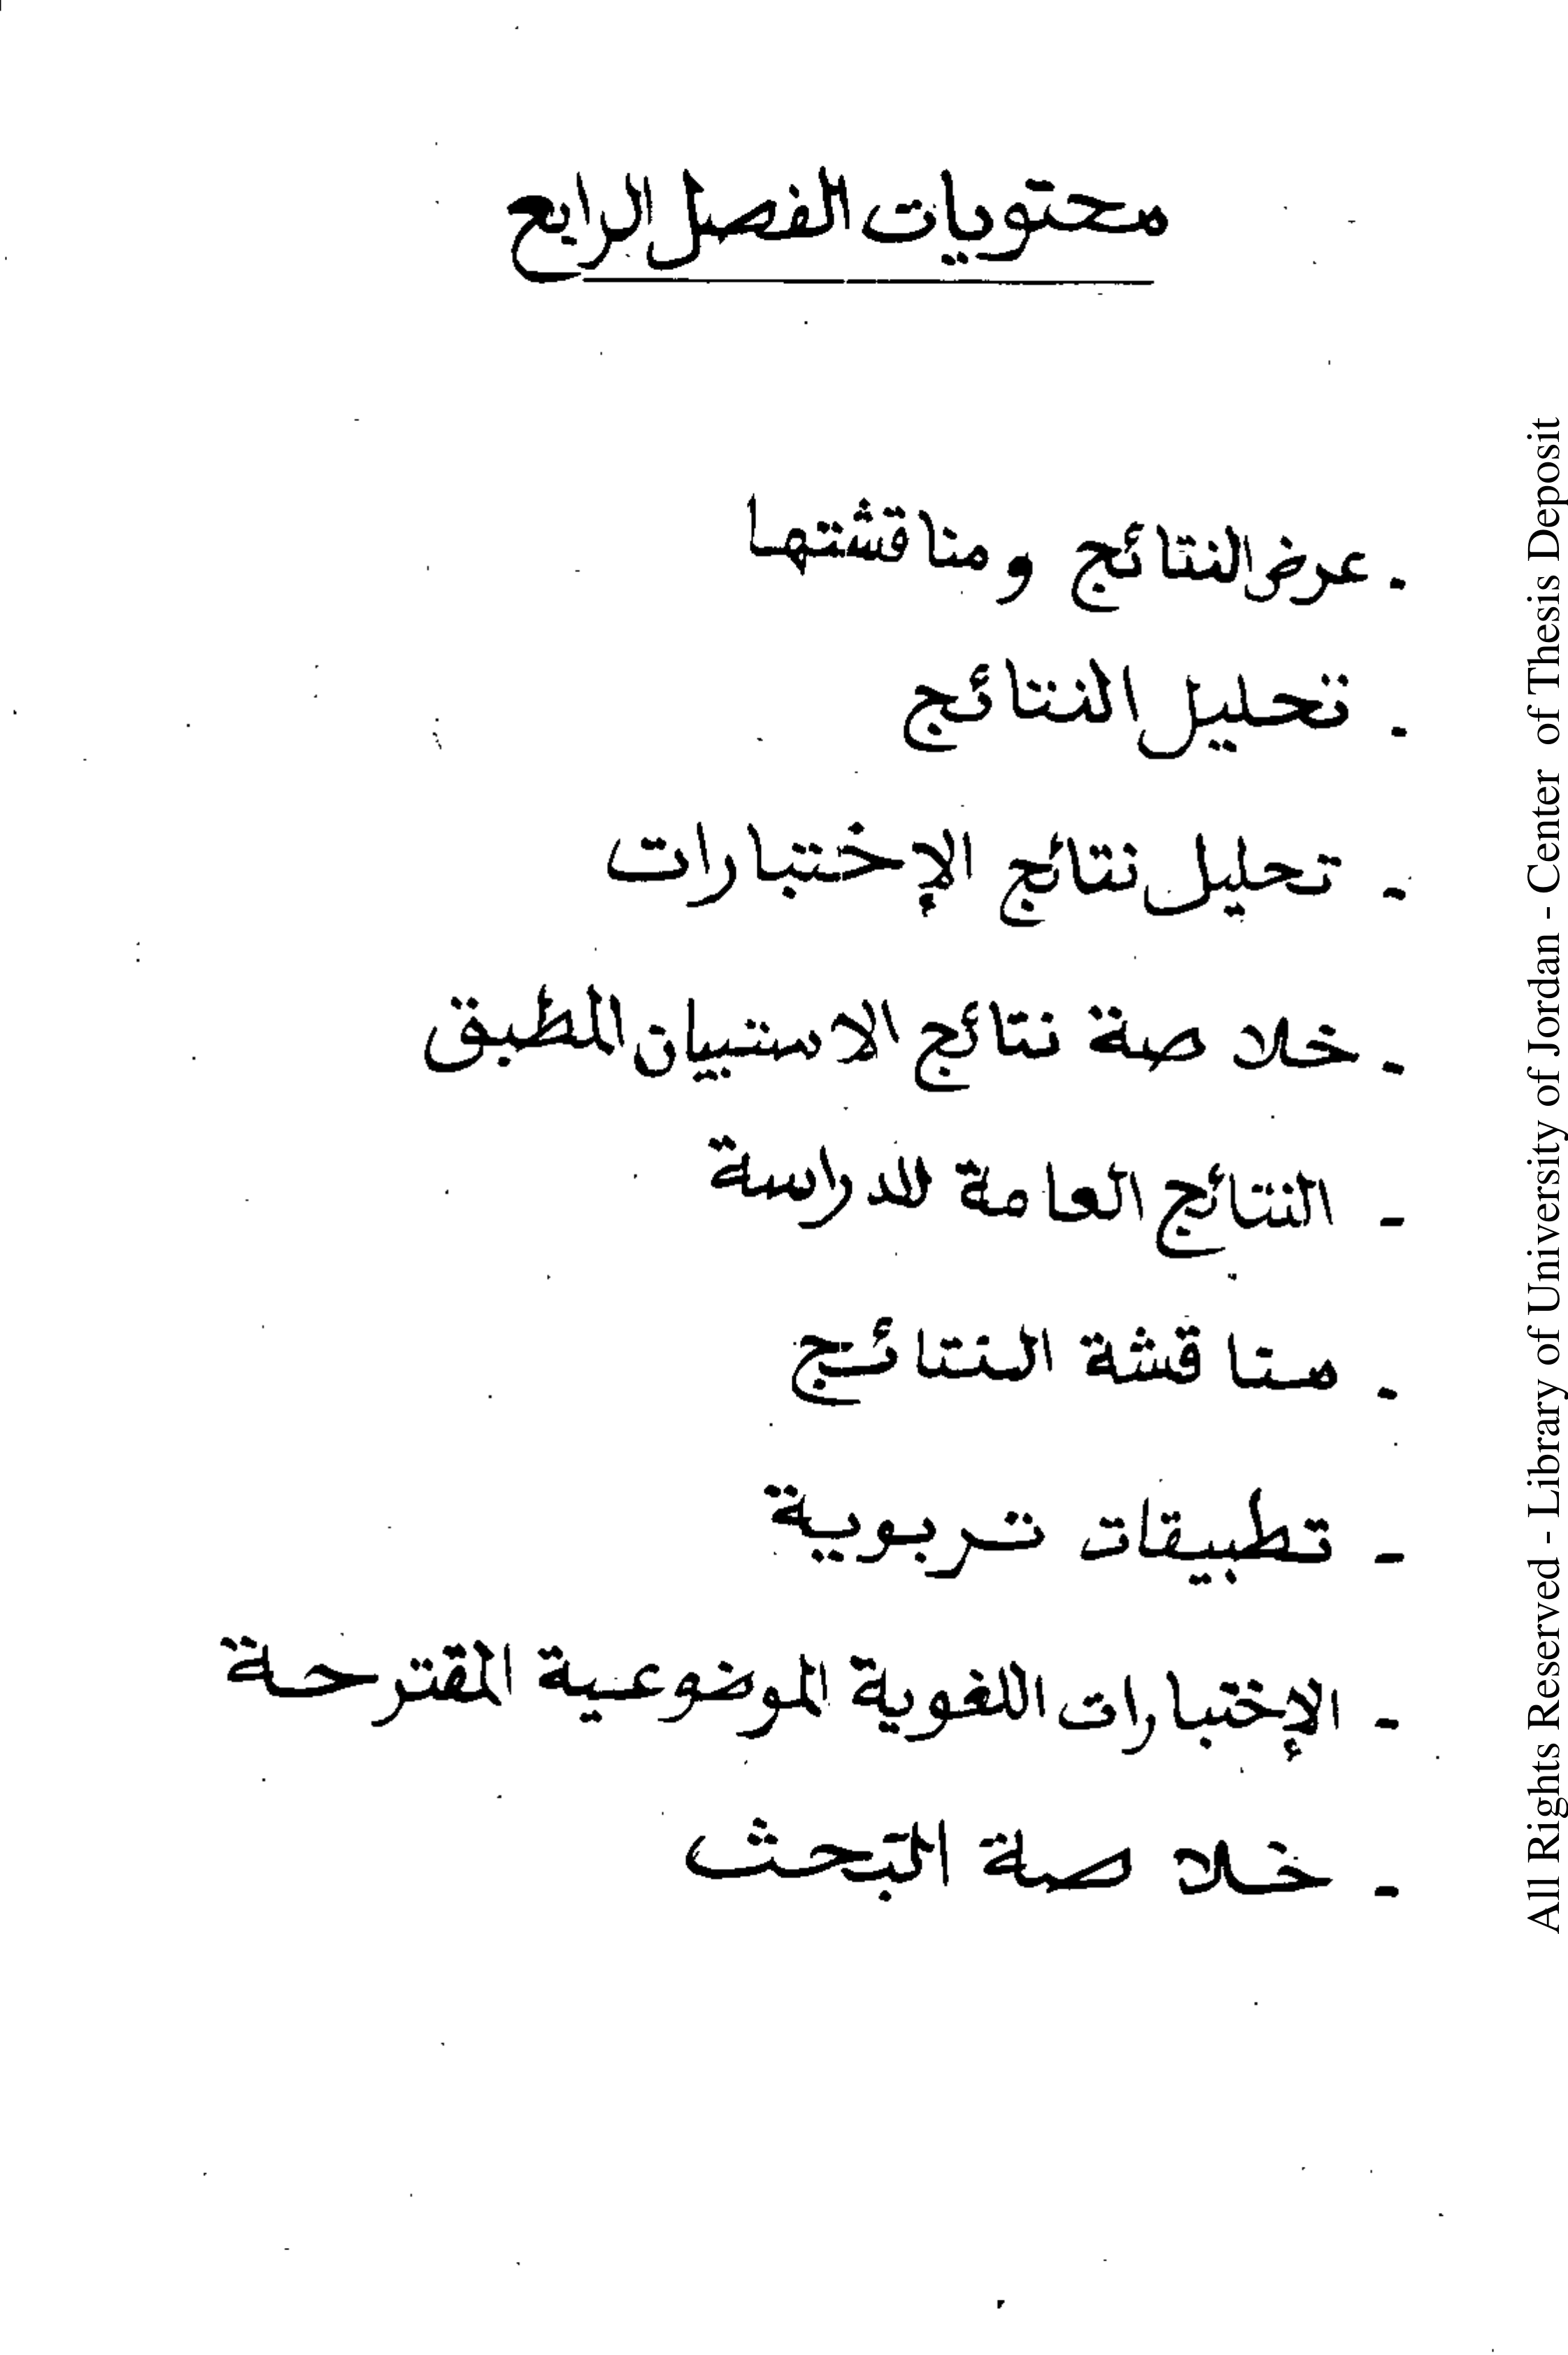 محتويات الفصل الرابع
- عرض النتائج ومناقشتها
- تحليل النتائج
- تحليل نتائج الإختبارات
- خلاصة نتائج الاستبيان المطبق
- النتائج العامة للدراسة
- مناقشة النتائج
- تطبيقات تربوية
- الإختبارات اللغوية الموضوعية المقترحة
- خلاصة البحث
All Rights Reserved - Library of University of Jordan - Center of Thesis Deposit